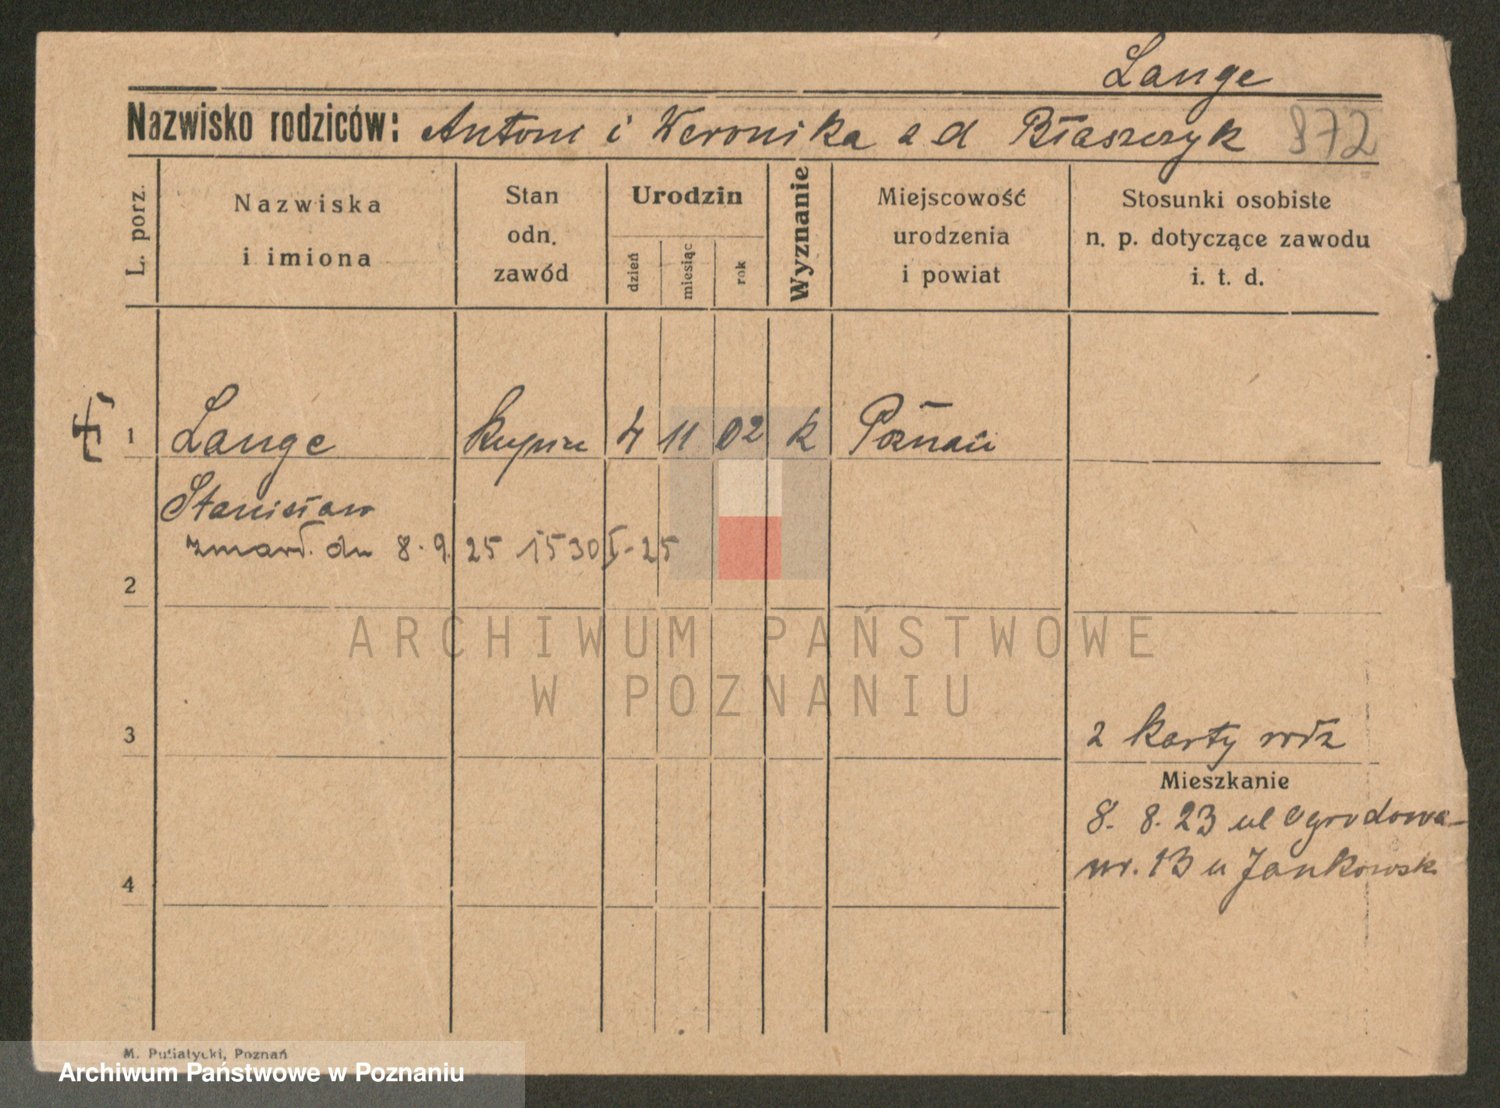 Lange
Nazwisko rodziców: Antoni i Weronika z d Błaszczyk 872
L. porz.
Nazwiska
i imiona
Stan
odn.
zawód
Urodzin
dzień
miesiąc
rok
Wyznanie
Miejscowość
urodzenia
i powiat
Stosunki osobiste
n. p. dotyczące zawodu
i. t. d.
1 Lange kupiec 4 11 02 k Poznań
Stanisław
zmarł. dn 8. 9. 25 1530 I-25
2
ARCHIWUM PAŃSTWOWE
W POZNANIU
3
2 karty rodz
Mieszkanie
8. 8. 23 ul Ogrodowa
nr. 13 u Jankowsk
4
M. Putiatycki, Poznań
Archiwum Państwowe w Poznaniu